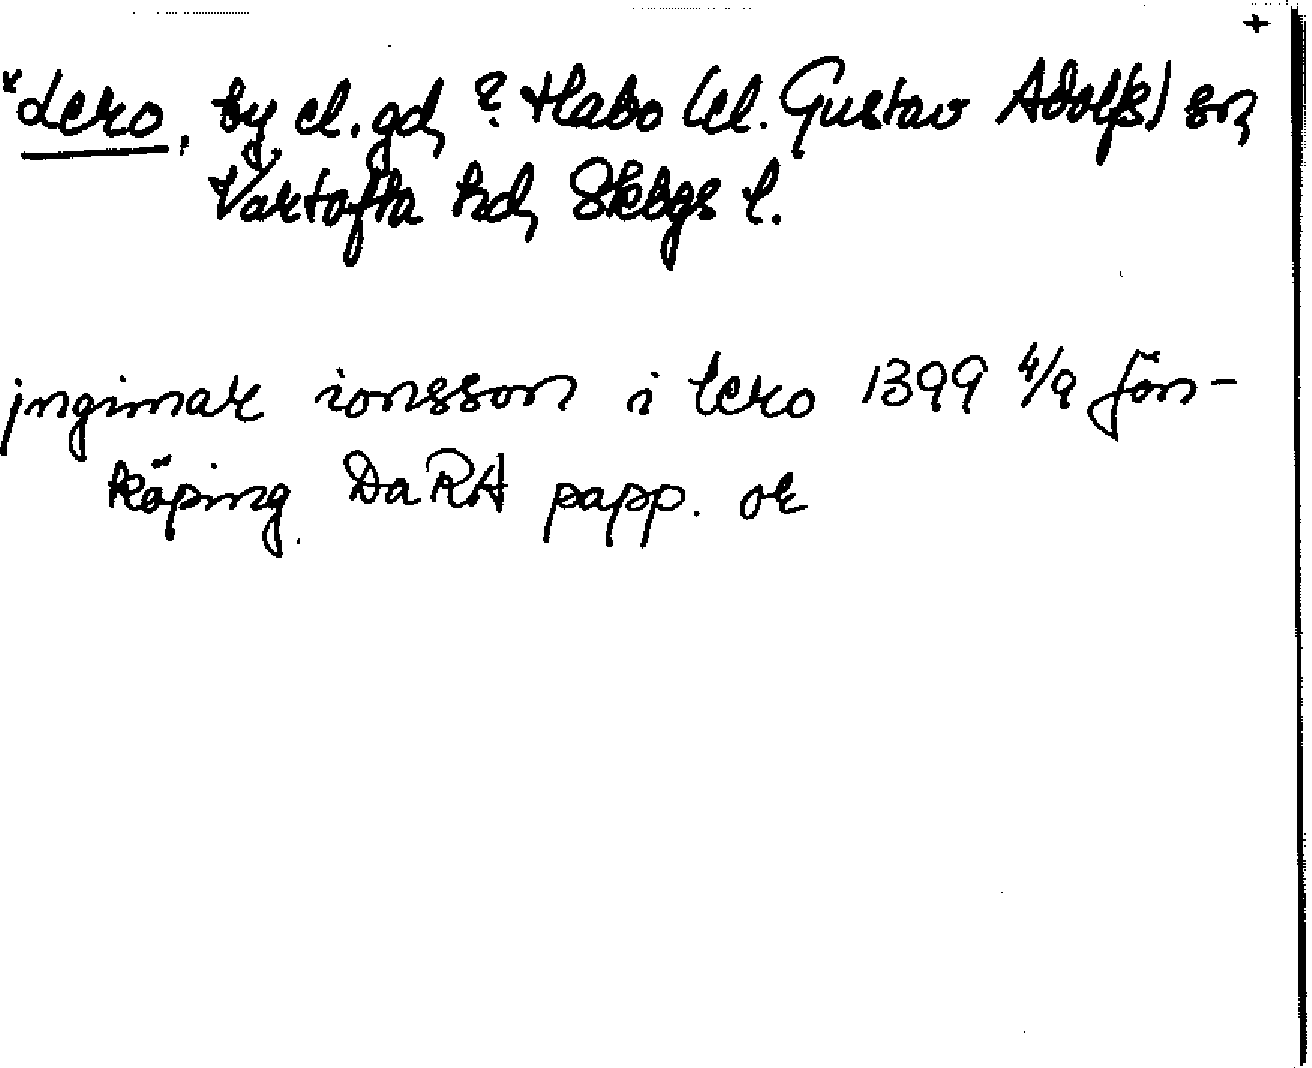 +
*Lero, by el. gd, ? Habo (el. Gustav Adolfs) sn,
Vartofta hd, Skbgs l.
jngimar ionsson i lero 1399 4/9 Jön-
köping. DaRA papp. or